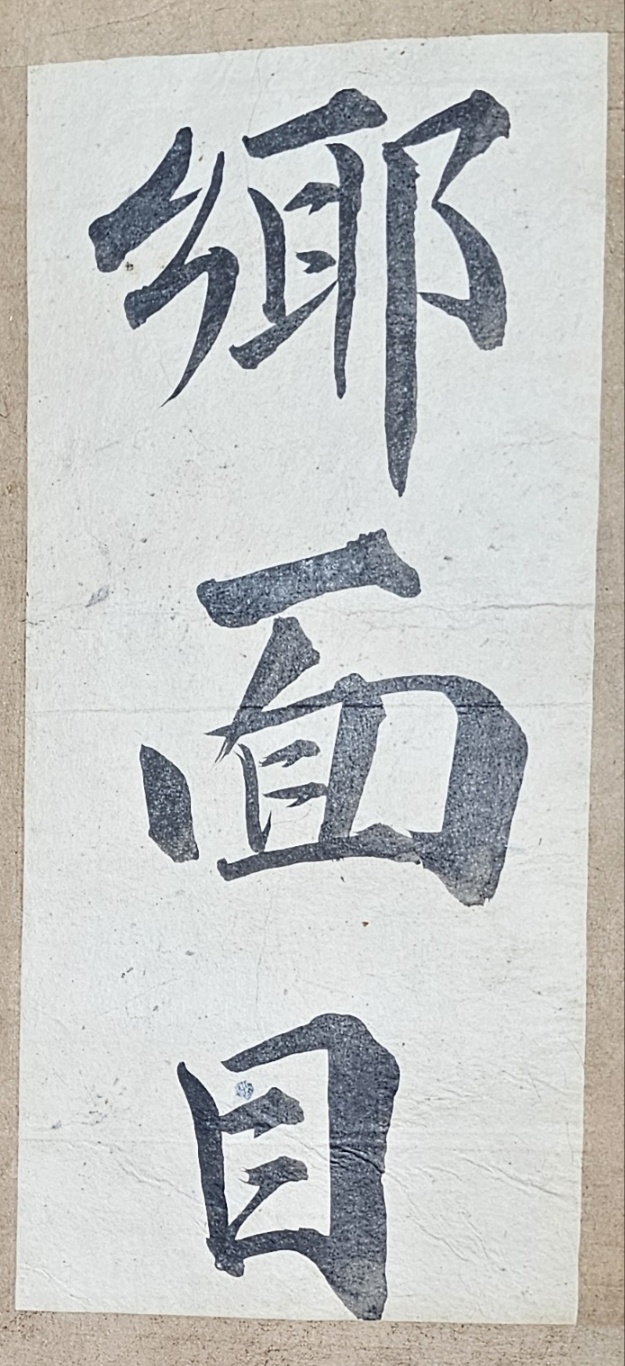 鄉面目